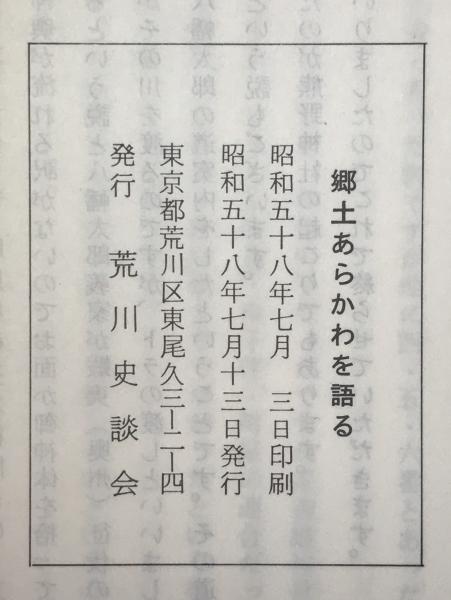 郷土あらかわを語る
昭和五十八年七月　三日印刷
昭和五十八年七月十三日発行
東京都荒川区東尾久三ー二ー四
発行　荒川史談会